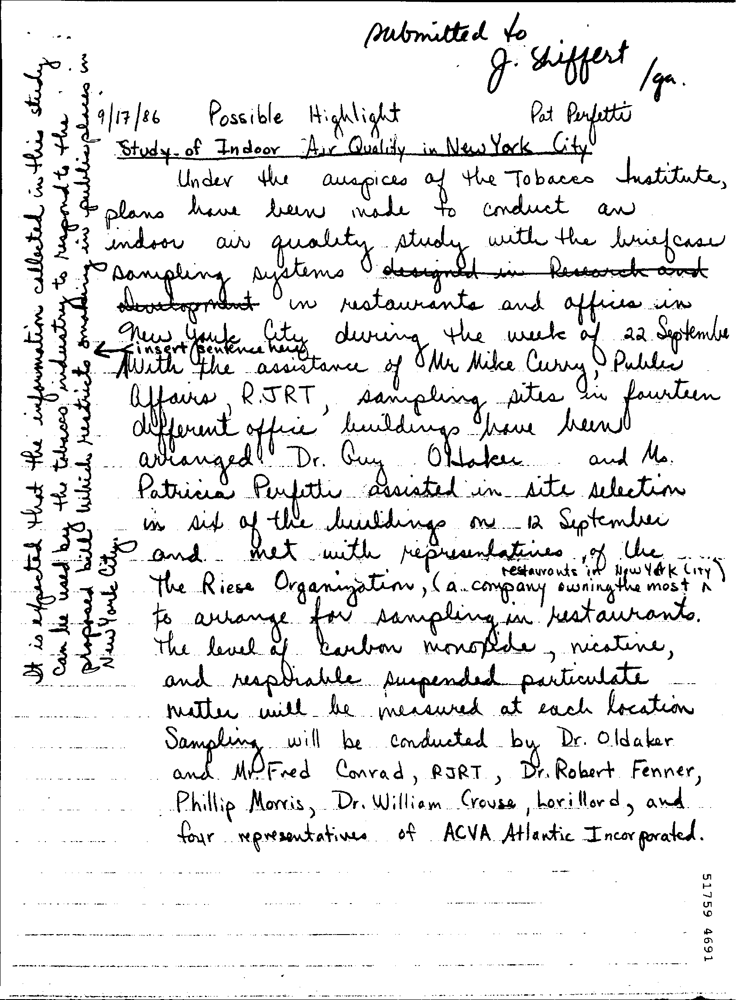 submitted to
J. Shiffert
/ga.
9/17/86 Possible Highlight Pat Perfetti
Study of Indoor Air Quality in New York City
Under the auspices of the Tobacco Institute,
plans have been made to conduct an
indoor air quality study with the briefcase
sampling systems designed in Research and
development in restaurants and offices in
New York City during the week of 22 September
insert sentence here
With the assistance of Mr Mike Curry, Public
Affairs, RJRT, sampling sites in fourteen
different office buildings have been
arranged. Dr. Guy Oldaker and Ms.
Patricia Perfetti assisted in site selection
in six of the buildings on 12 September
and met with representatives of the
restaurants in New York City)
The Riese Organization, (a company owning the most
to arrange for sampling in restaurants.
The level of carbon monoxide, nicotine,
and respirable suspended particulate
matter will be measured at each location
Sampling will be conducted by Dr. Oldaker
and Mr Fred Conrad, RJRT, Dr. Robert Fenner,
Phillip Morris, Dr. William Crouse, Lorillord, and
four representatives of ACVA Atlantic Incorporated.
It is expected that the information collected in this study
can be used by the tobacco industry to respond to the
proposed bill which restricts smoking in public places in
New York City.
51759 4691